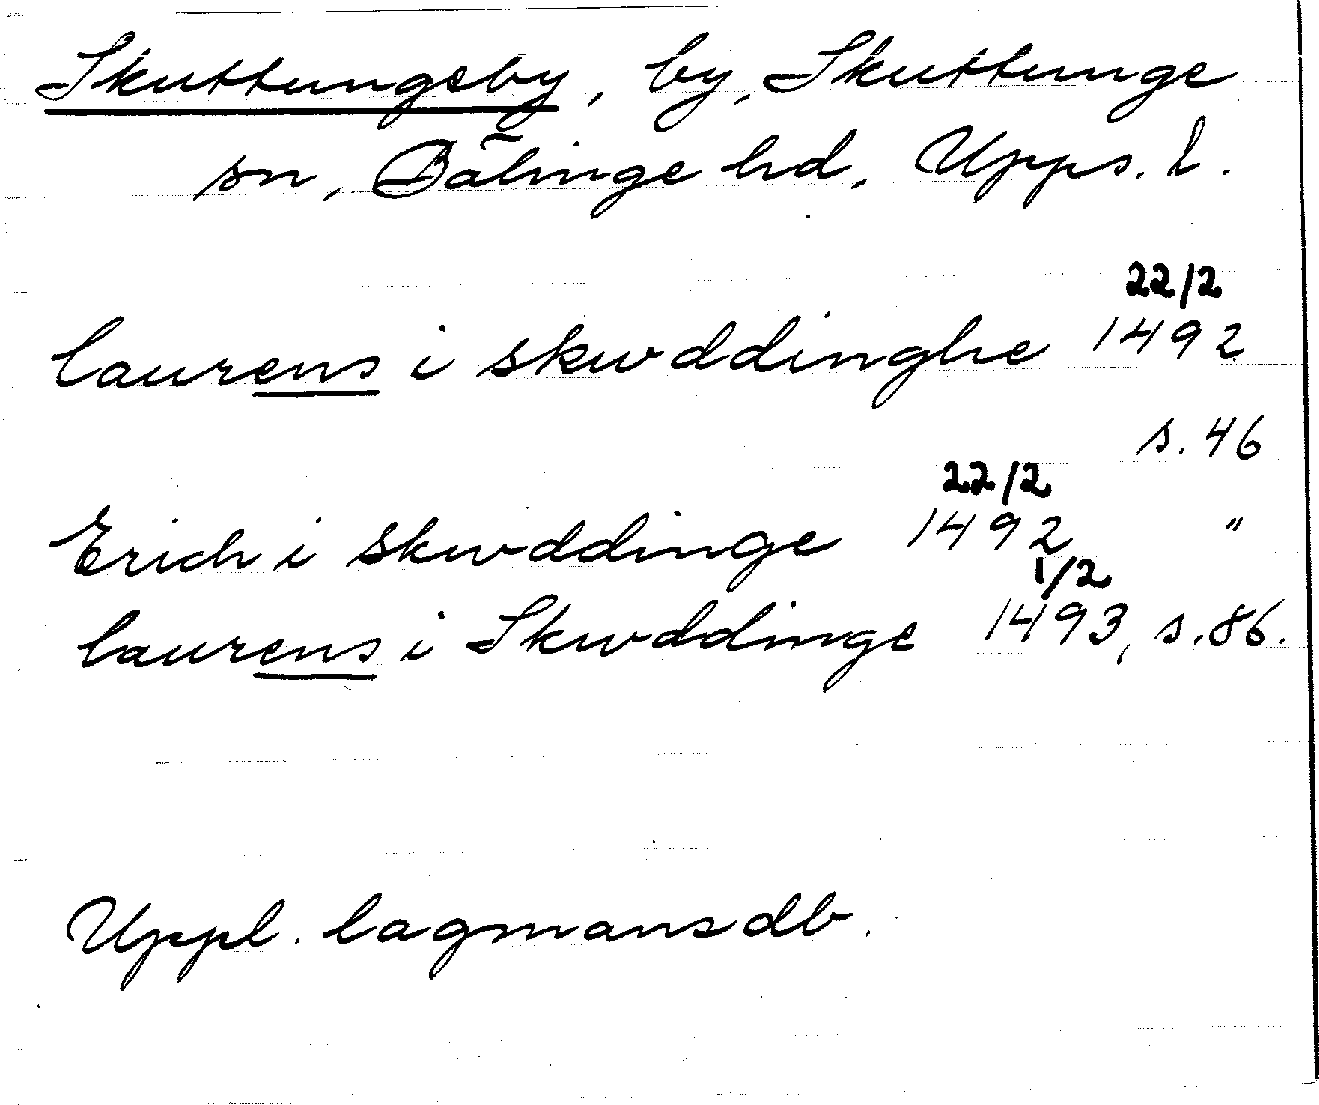 Skuttungeby, by, Skuttunge
sn, Bälinge hd, Upps. l.
22/2
laurens i skwddinghe 1492
s. 46
22/2
Erich i skwddinge 1492 "
1/2
laurens i Skwddinge 1493, s. 86.
Uppl. lagmansdb.